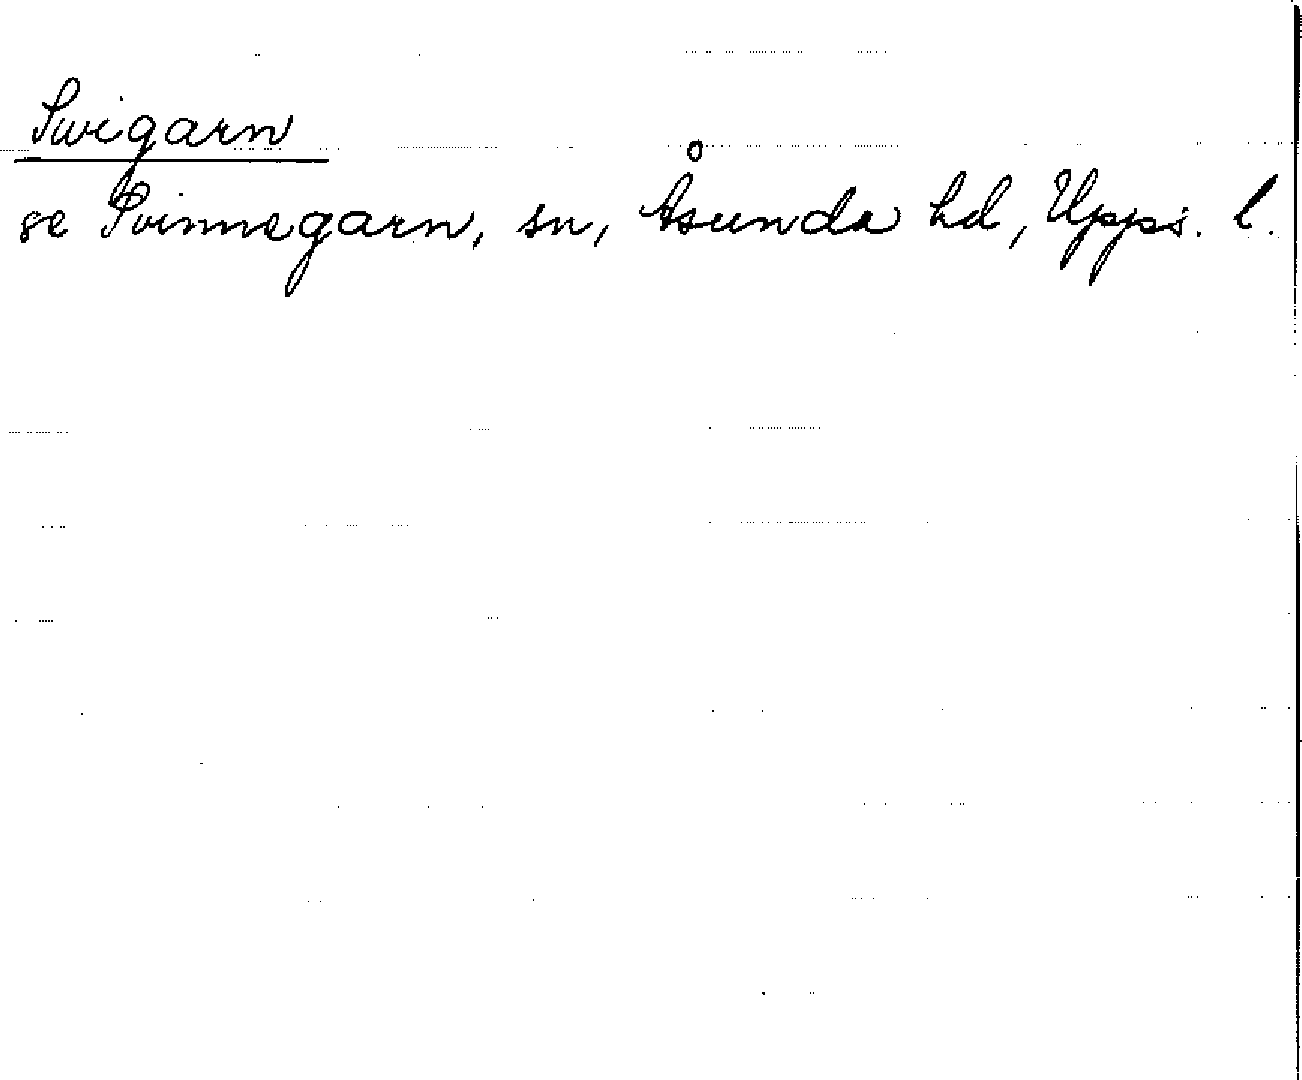 Swigarn
se Svinnegarn, sn, Åsunda hd, Upps. l.